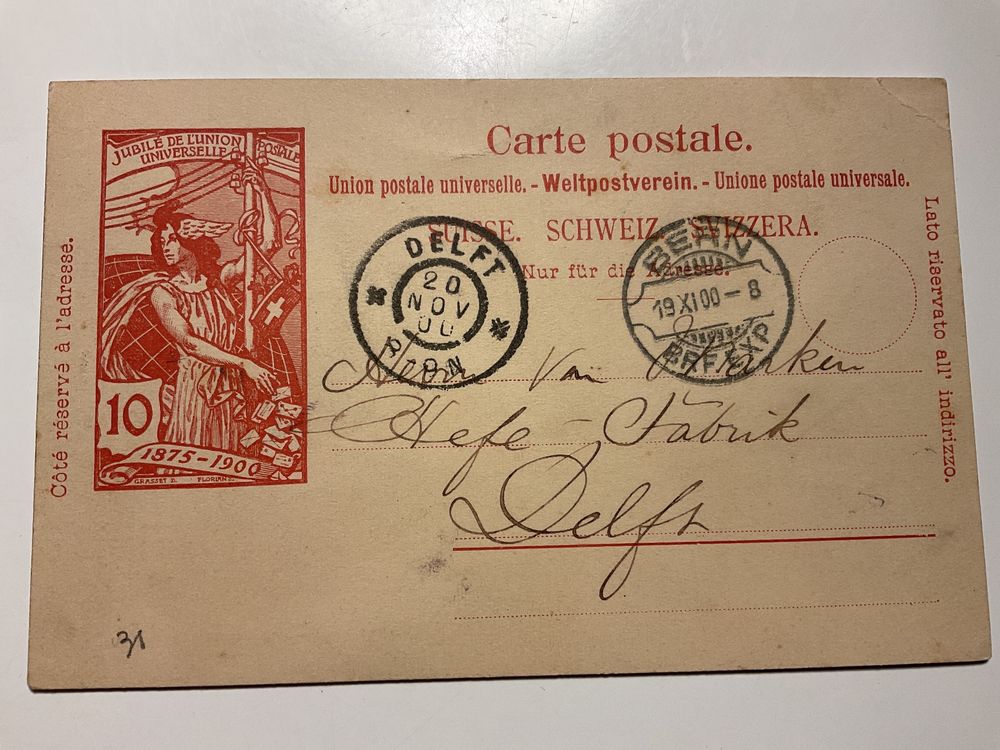 JUBILÉ DE L'UNION
POSTALE
UNIVERSELLE
10
1875-1900
GRASSET D.
Côté réservé à l'adresse.
Carte postale.
Union postale universelle. - Weltpostverein. - Unione postale universale.
SUISSE. SCHWEIZ. SVIZZERA.
Nur für die Adresse.
Lato riservato all' indirizzo.
DELFT
20
NOV
00
BERN
19 XI 00 - 8
BRF. EXP.
Herrn Van Marken
Hefe-Fabrik
Delft
31